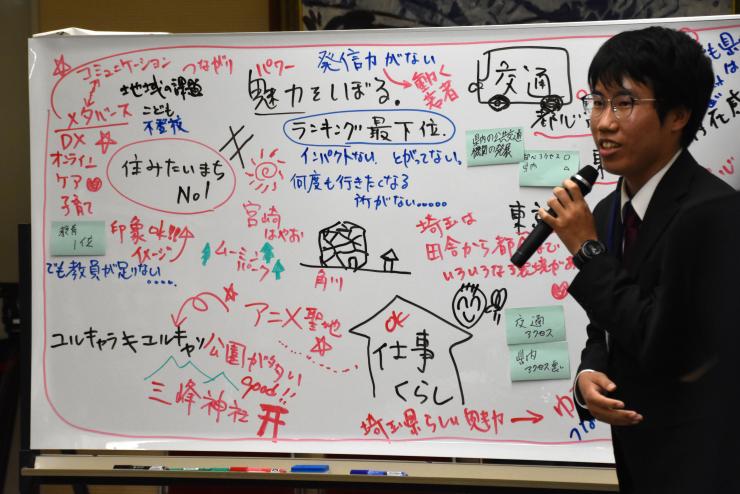 コミュニケーション
つながり
地域の課題
メタバース
こども
不登校
DX
オンライン
ケア
子育て
住みたいまち
No1
教育
1位
印象OK!!
イメージ
でも教員が足りない.....
パワー
魅力をしぼる。
発信力がない
動く
若者
ランキング最下位.
インパクトない とがってない。
何度も行きたくなる
所がない.....
宮崎
はやお
ムーミン
パーク
角川
アニメ聖地
ユルキャラ
公園が多い
good!!
三峰神社
OK
仕事
くらし
埼玉県らしい魅力 →
交通
県内の公共交通
機関の発展
埼玉は
田舎から都会まで
いろいろな環境があ
交通
アクセス
県内
アクセス悪い